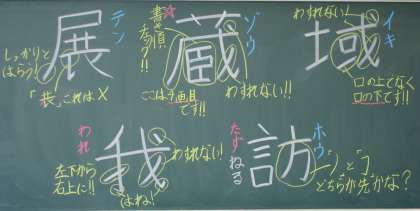 展
テン
しっかりと
はらう!
「𧘇」これは×
蔵
ゾウ
☆書き順
ここは9画目
です!!
わすれない!!
域
イキ
わすれない!
口の上でなく
口の下です!!
我
われ
わすれない!
左下から
右上に!!
はねる!
訪
ホウ
たずねる
どちらが先かな?